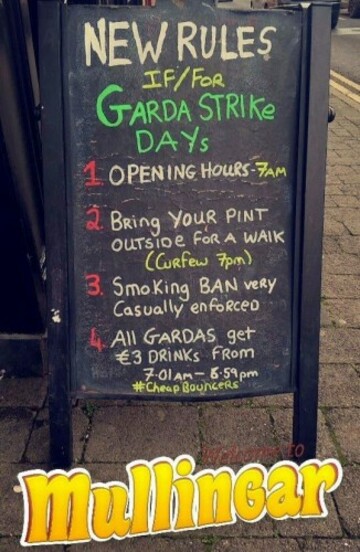 NEW RULES
IF/FOR
GARDA STRIKE
DAYs
1 OPENING HOURS-7AM
2. Bring YOUR PINT
OUTSIDE FOR A WALK
(CURFEW 7pm)
3. Smoking BAN very
Casually enforced
4. All GARDAS get
€3 DRINKS FROM
7.01AM-6.59pm
#Cheap Bouncers
TO
Mullingar